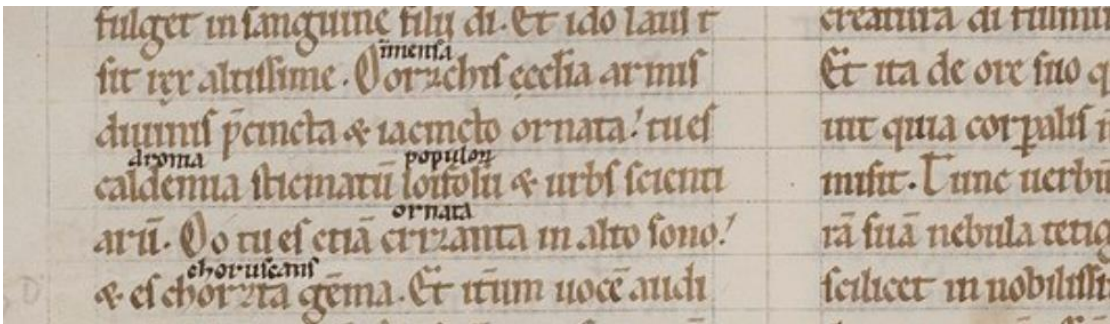 fulget in sanguine filii di. Et ido laus t
inmensa
sit rex altissime. O orzchis ecclia armis
diuinis p̄cincta & iacincto ornata! tu es
aroma
populorū
caldemia sticmatū loifolū & urbs scienti
ornata
arū. O o tu es etiā crizanta in alto sono!
choruscans
& es chorzta gēma. Et itīum uocē audi
creatura di
Et ita de ore suo q
uit quia corꝑalis
misit. Tunc uerbū
rā suā nebula tetig
scilicet in nobilissi